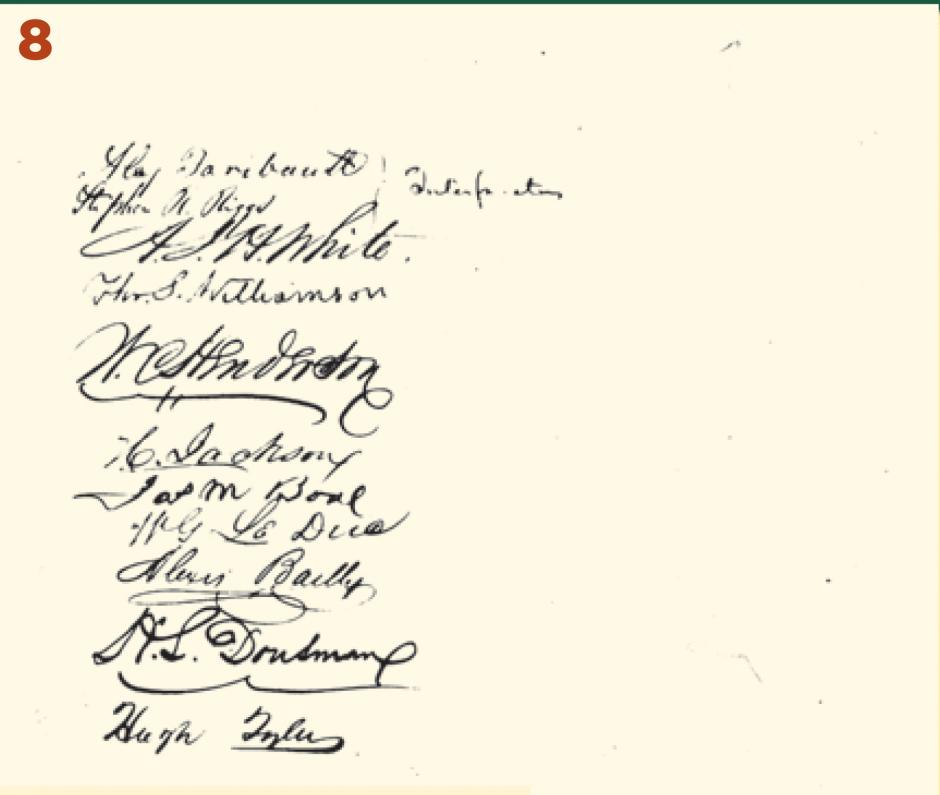 8
Alex Faribault
Interpreters
Stephen R. Riggs
A.S.H. White.
Thos. S. Williamson
W. C. Henderson
Jackson
Jas M Boal
W G Le Duc
Alexis Bailly
H. L. Dousman
Hugh Tyler